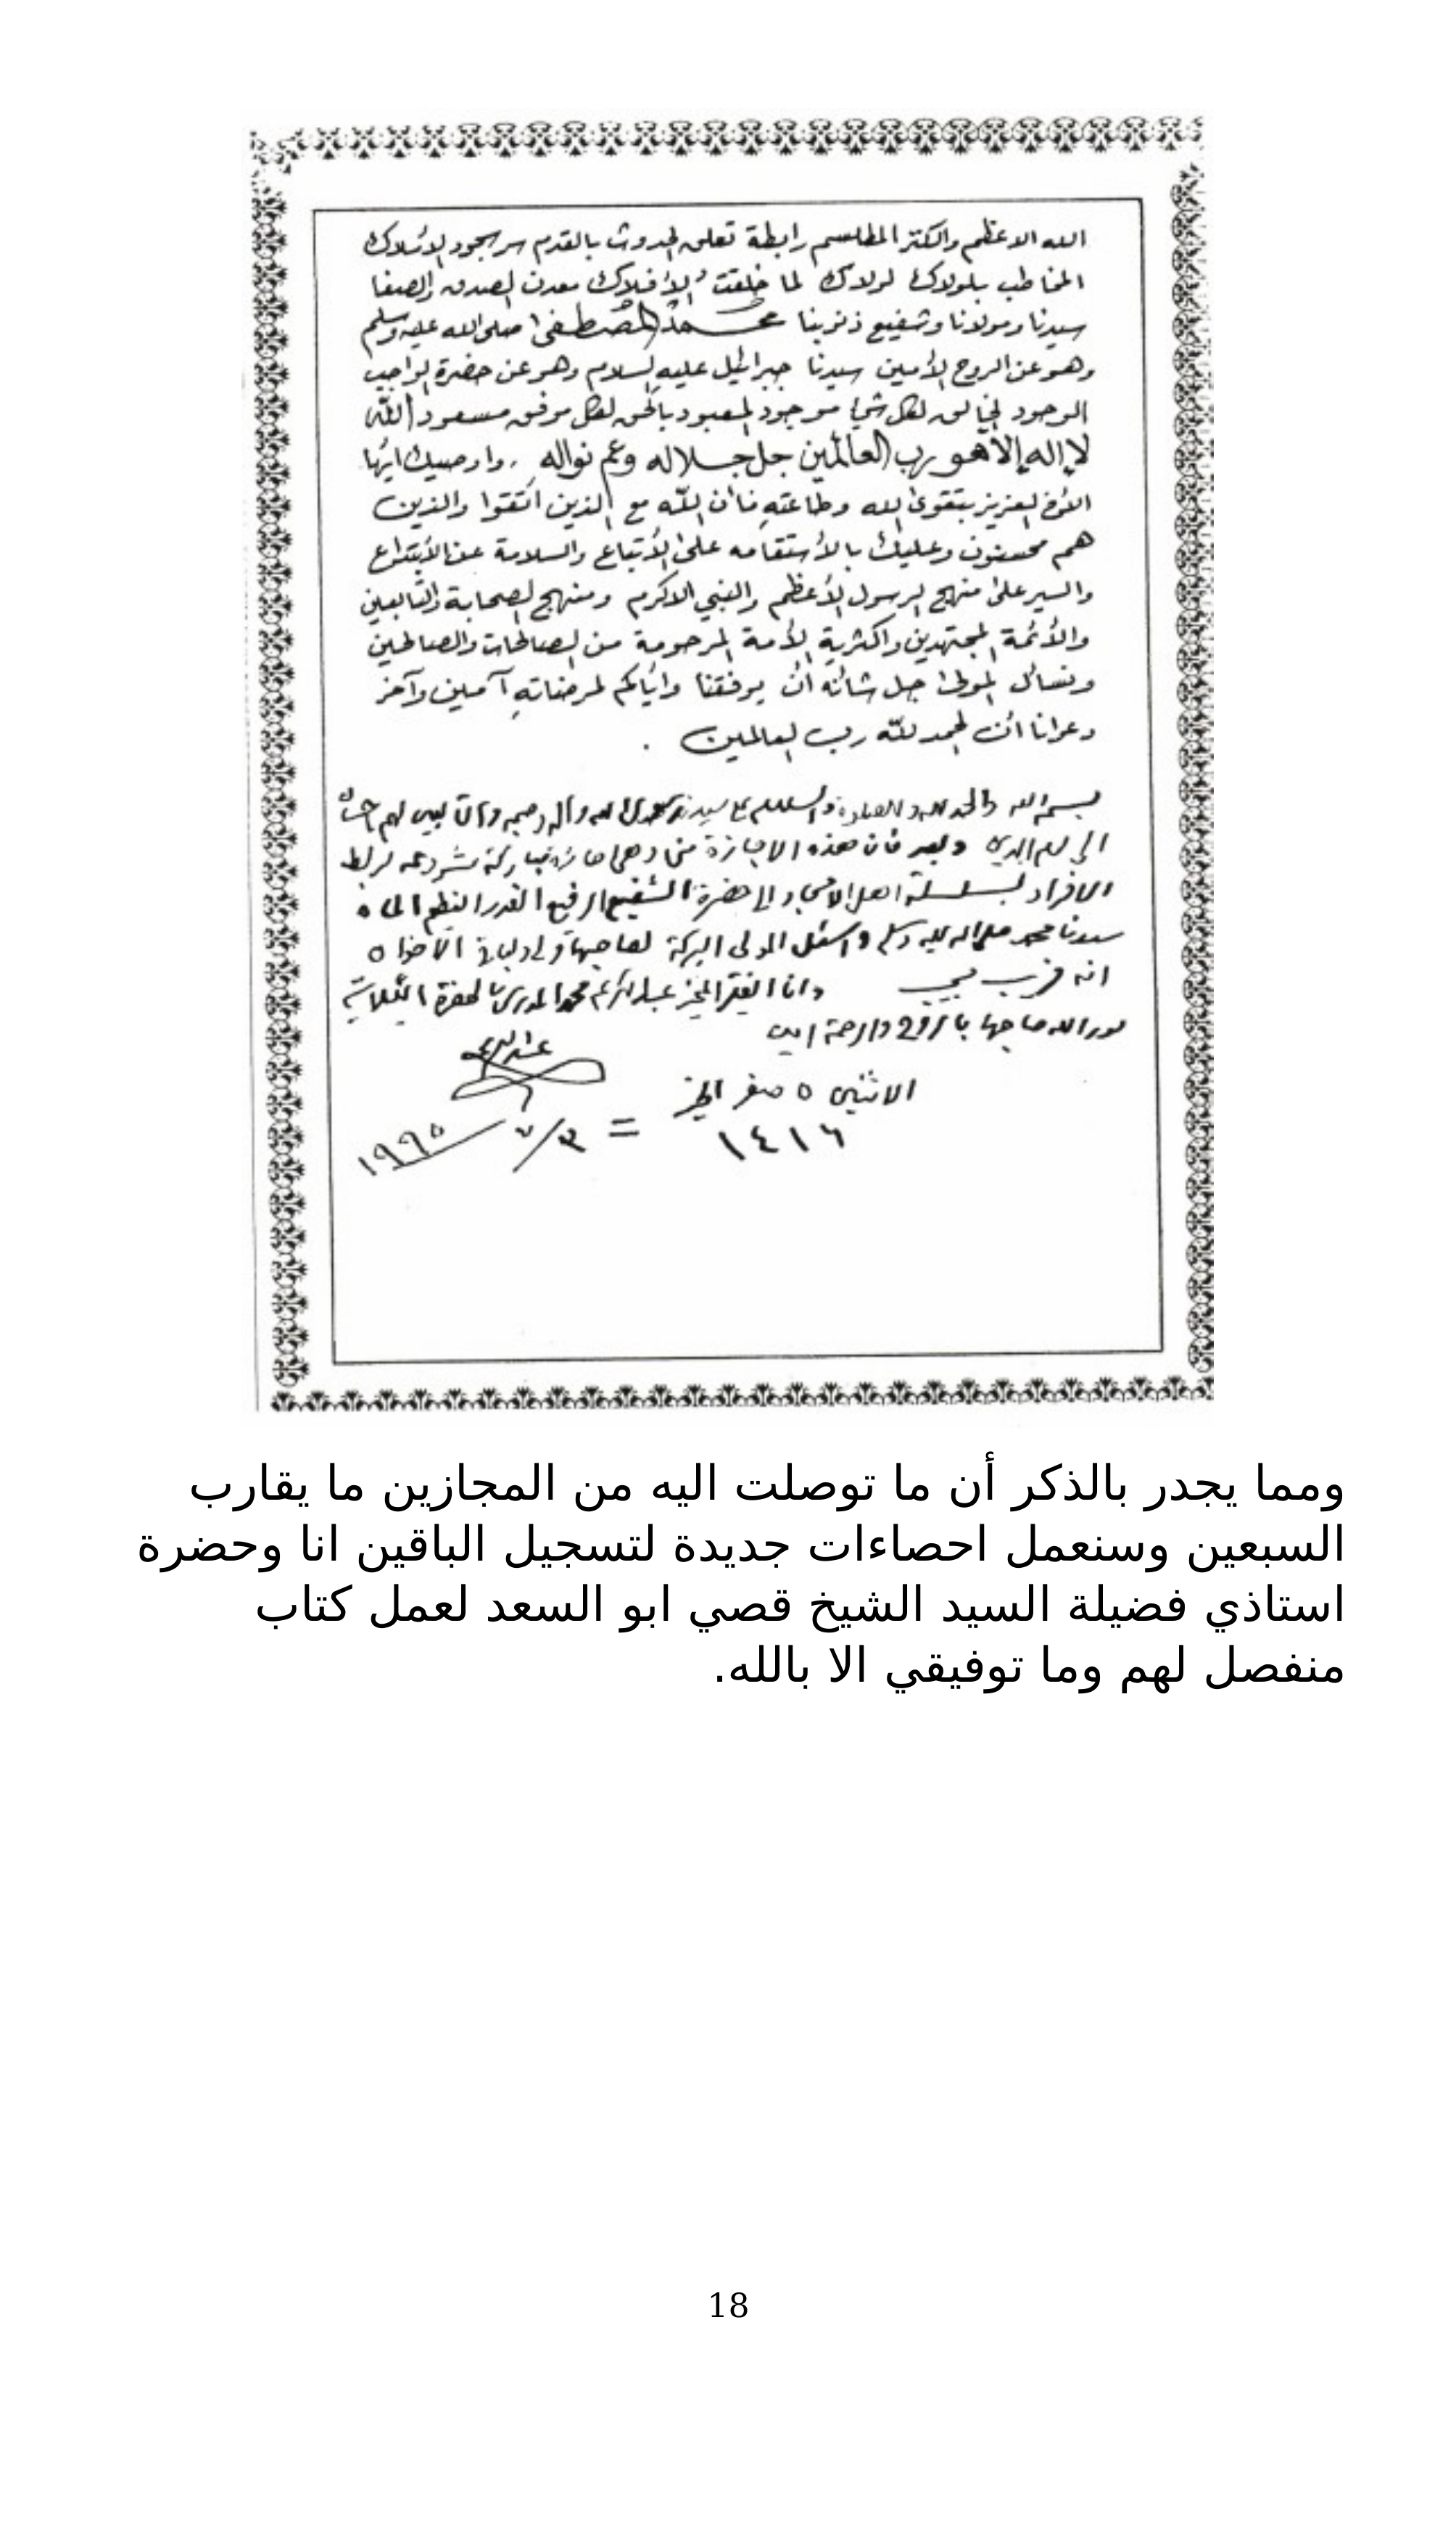 الله الاعظم والكنز المطلسم رابطة تعلق الحدوث بالقدم سر سجود الأملاك
المخاطب بلولاك لولاك لما خلقت الأفلاك معدن الصدق والصفا
سيدنا ومولانا وشفيع ذنوبنا محمد المصطفى صلى الله عليه وسلم
وهو عن الروح الأمين سيدنا جبرائيل عليه السلام وهو عن حضرة الواجب
الوجود الخالق لكل شيء موجود المعبود بالحق لكل موفق مسعود الله
لا إله إلا هو رب العالمين جل جلاله وعم نواله . واوصيك ايها
الأخ العزيز بتقوى الله وطاعته فأن الله مع الذين اتقوا والذين
هم محسنون وعليك بالأستقامه على الأتباع والسلامة عن الأبتداع
والسير على منهج الرسول الأعظم والنبي الاكرم ومنهج الصحابة والتابعين
والأئمة المجتهدين واكثرية الأمة المرحومة من الصالحات والصالحين
ونسأل المولى جل شأنه أن يوفقنا واياكم لمرضاته آمين وآخر
دعوانا أن الحمد لله رب العالمين .
بسم الله والحمد لله والصلاة والسلام على سيدنا محمد وآله وصحبه والتابعين لهم
الى يوم الدين وبعد فان هذه الاجازة مني وهي مباركة لربط
الافراد لسلسلة اهل الامجاد الى حضرة الشفيع الرفيع القدر العظيم الجاه
سيدنا محمد صلى الله عليه وسلم واسئل المولى البركة لصاحبها
انه قريب مجيب وانا الفقير عبد الكريم محمد المدرس بالحضرة الكيلانية
نور الله صاحبها بالروح والرحمة امين
عبد الكريم
الاثنين ٥ صفر الخير
١٤١٦ = ٣/٧ ١٩٩٥
ومما يجدر بالذكر أن ما توصلت اليه من المجازين ما يقارب
السبعين وسنعمل احصاءات جديدة لتسجيل الباقين انا وحضرة
استاذي فضيلة السيد الشيخ قصي ابو السعد لعمل كتاب
منفصل لهم وما توفيقي الا بالله.
18